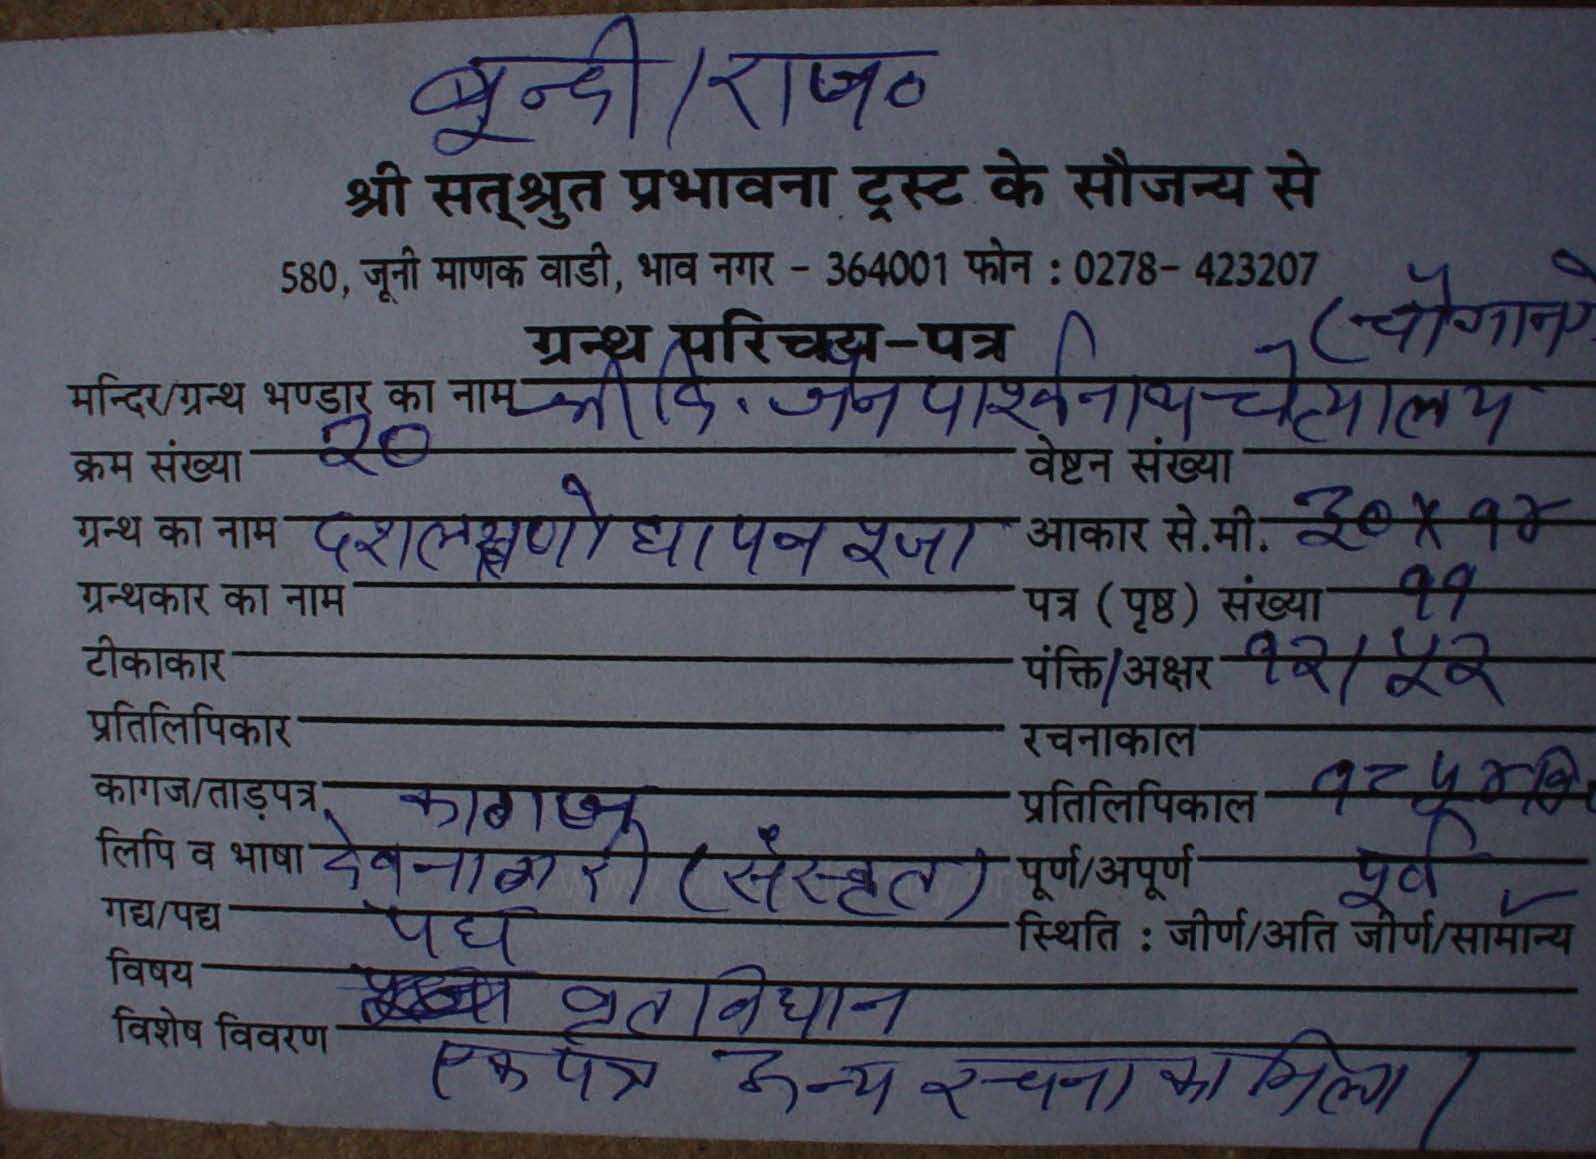 बून्दी/राज०
श्री सत्श्रुत प्रभावना ट्रस्ट के सौजन्य से
580, जूनी माणक वाडी, भाव नगर - 364001 फोन : 0278- 423207
ग्रन्थ परिचय-पत्र
मन्दिर/ग्रन्थ भण्डार का नाम श्री दि. जैन पार्श्वनाथ चैत्यालय (चौगान
क्रम संख्या २० वेष्टन संख्या
ग्रन्थ का नाम दशलक्षणोद्यापन पूजा आकार से.मी. ३०x१४
ग्रन्थकार का नाम पत्र (पृष्ठ) संख्या ११
टीकाकार पंक्ति/अक्षर १२/५२
प्रतिलिपिकार रचनाकाल
कागज/ताड़पत्र कागज प्रतिलिपिकाल १८५४ वि
लिपि व भाषा देवनागरी (संस्कृत) पूर्ण/अपूर्ण पूर्ण
गद्य/पद्य पद्य स्थिति : जीर्ण/अति जीर्ण/सामान्य
विषय व्रत विधान
विशेष विवरण एक पत्र अन्य रचना का मिला।